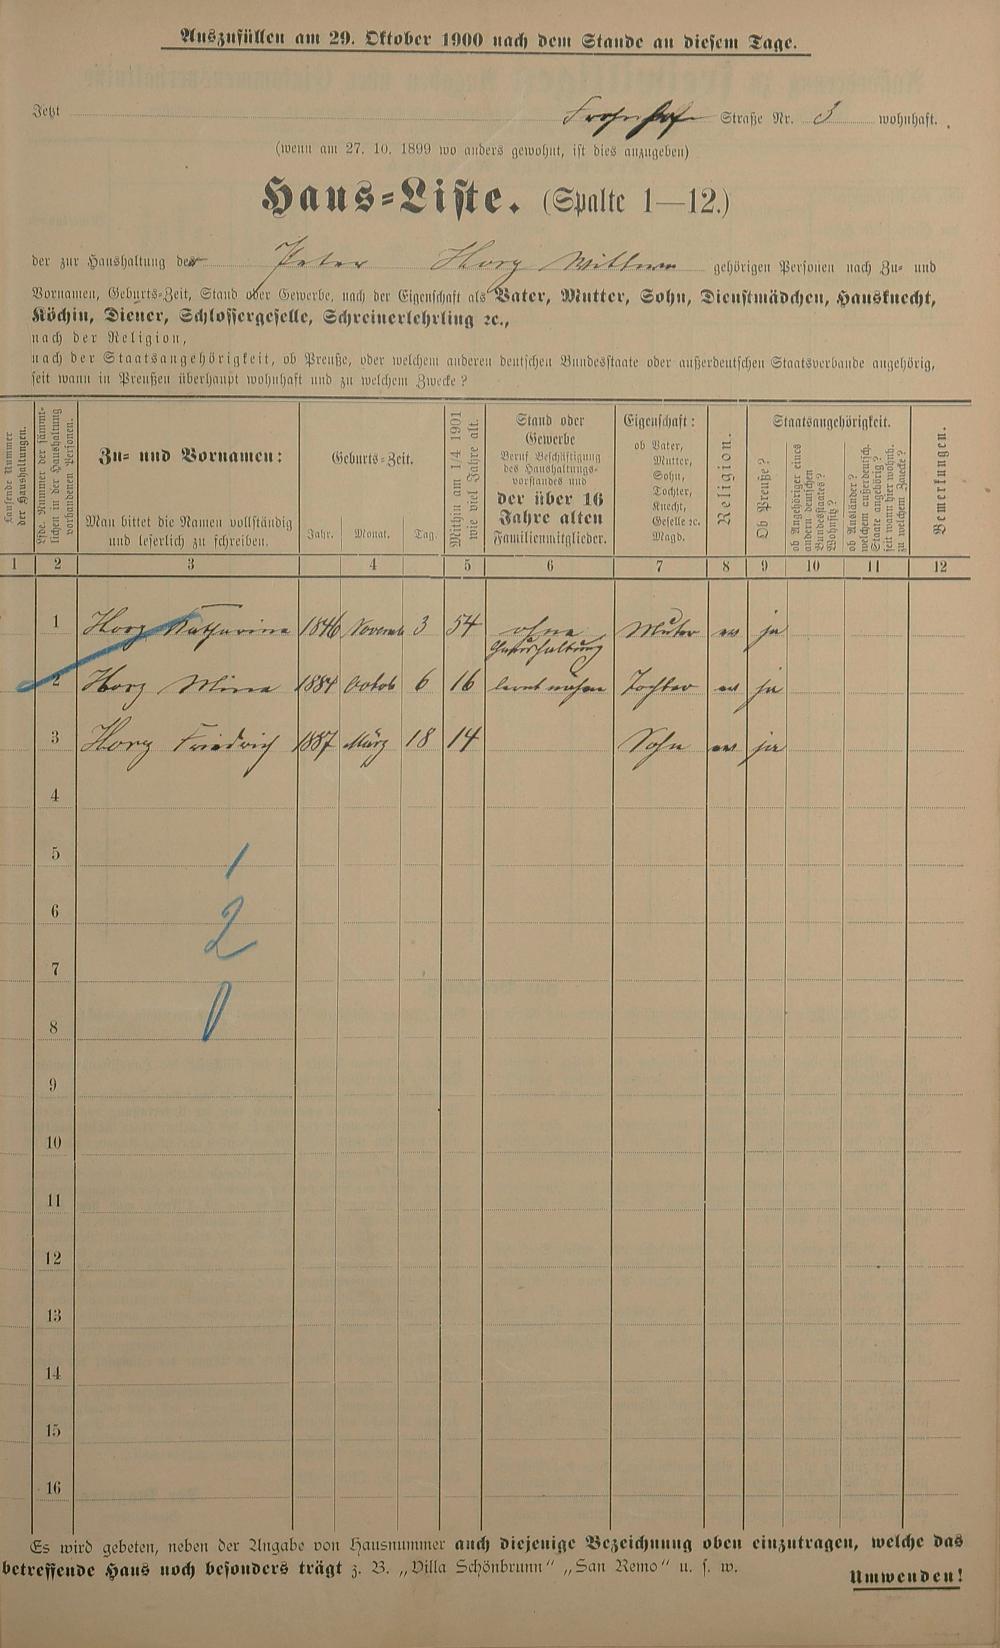 Auszufüllen am 29. Oktober 1900 nach dem Stande an diesem Tage.
Jetzt Frohnhof Straße Nr. 3 wohnhaft.
(wenn am 27. 10. 1899 wo anders gewohnt, ist dies anzugeben)
Haus-Liste. (Spalte 1—12.)
der zur Haushaltung der Peter Horz Wittwe gehörigen Personen nach Zu- und
Vornamen, Geburts-Zeit, Stand oder Gewerbe, nach der Eigenschaft als Vater, Mutter, Sohn, Dienstmädchen, Hausknecht,
Köchin, Diener, Schlossergeselle, Schreinerlehrling ꝛc.,
nach der Religion,
nach der Staatsangehörigkeit, ob Preuße, oder welchem anderen deutschen Bundesstaate oder außerdeutschen Staatsverbande angehörig,
seit wann in Preußen überhaupt wohnhaft und zu welchem Zwecke?
Laufende Nummer
der Haushaltungen.
Lfde. Nummer der sämmt-
lichen in der Haushaltung
vorhandenen Personen.
Zu- und Vornamen:
Man bittet die Namen vollständig
und leserlich zu schreiben.
Geburts-Zeit.
Jahr. Monat. Tag
Mithin am 1/4 1901
wie viel Jahre alt.
Stand oder
Gewerbe
Beruf Beschäftigung
des Haushaltungs-
vorstandes und
der über 16
Jahre alten
Familienmitglieder.
Eigenschaft:
ob Vater,
Mutter,
Sohn,
Tochter,
Knecht,
Geselle ꝛc.
Magd.
Religion.
Staatsangehörigkeit.
Ob Preuße?
ob Angehöriger eines
andern deutschen
Bundesstaates?
Wohnsitz?
ob Ausländer?
welchem außerdeutsch.
Staate angehörig?
seit wann hier wohnh.
zu welchem Zwecke?
Bemerkungen.
1 2 3 4 5 6 7 8 9 10 11 12
1 Horz Katharina 1846 Novemb 3 54 ohne Muter ev ja
Haushaltung
2 Horz Mina 1884 Octob 6 16 lernt nähen Tochter ev ja
3 Horz Friedrich 1887 März 18 14 Sohn ev ja
4
5 1
6 2
7
8 0
9
10
11
12
13
14
15
16
Es wird gebeten, neben der Angabe von Hausnummer auch diejenige Bezeichnung oben einzutragen, welche das
betreffende Haus noch besonders trägt z. B. „Villa Schönbrunn“ „San Remo“ u. s. w.
Umwenden!